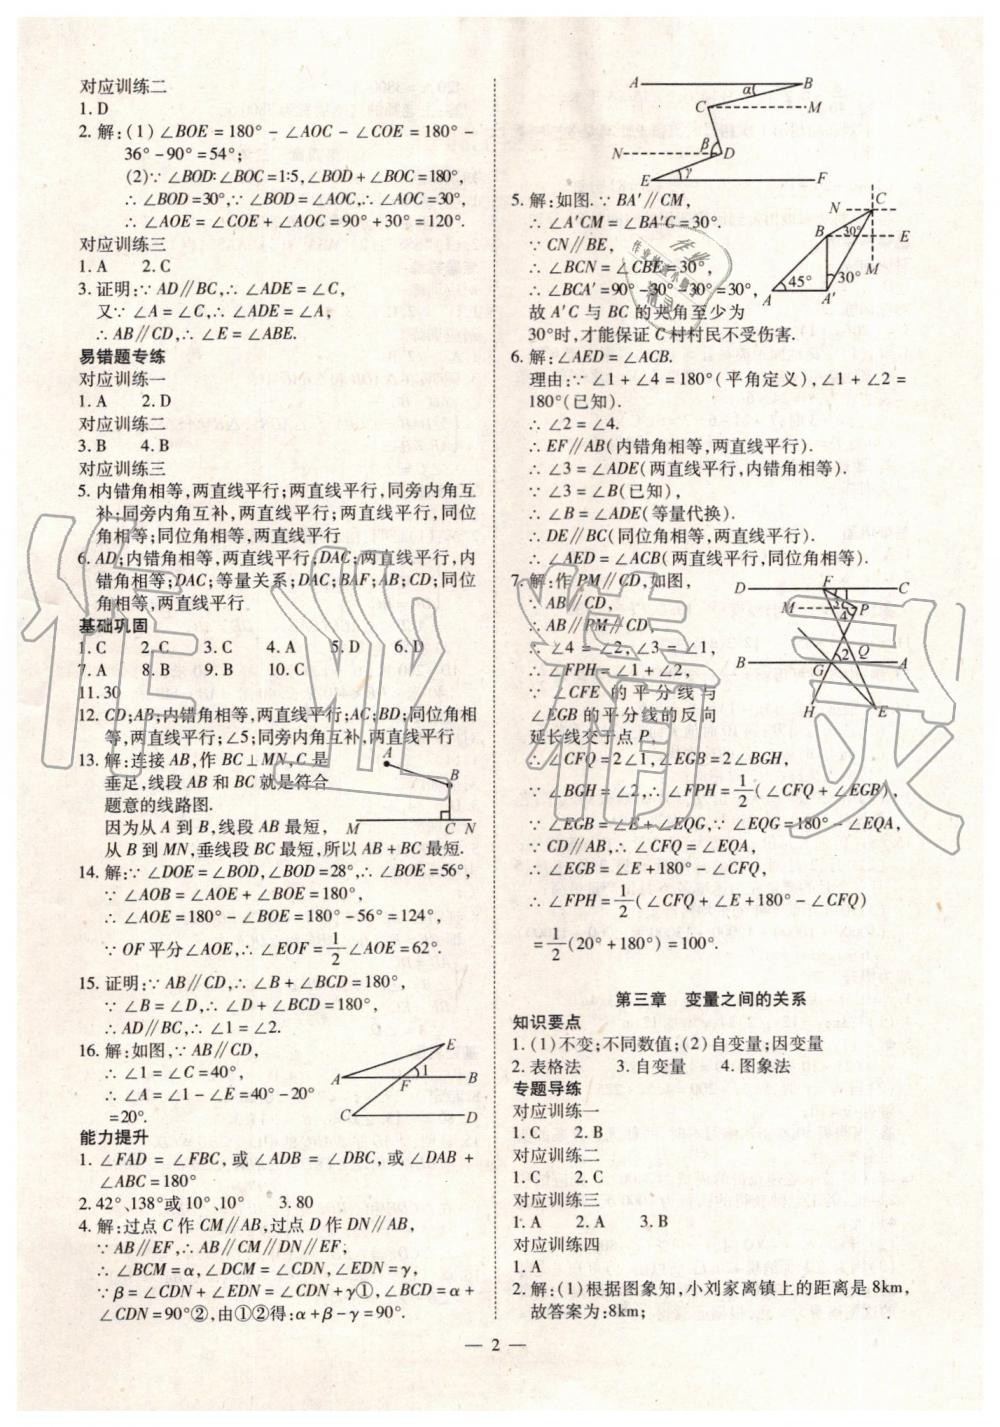 对应训练二
1. D
2. 解:(1) ∠BOE = 180° - ∠AOC - ∠COE = 180° -
36° - 90° = 54°;
(2)∵ ∠BOD∶∠BOC = 1∶5,∠BOD + ∠BOC = 180°,
∴ ∠BOD = 30°,∵ ∠BOD = ∠AOC,∴ ∠AOC = 30°,
∴ ∠AOE = ∠COE + ∠AOC = 90° + 30° = 120°.
对应训练三
1. A 2. C
3. 证明:∵ AD∥BC,∴ ∠ADE = ∠C,
又∵ ∠A = ∠C,∴ ∠ADE = ∠A,
∴ AB∥CD,∴ ∠E = ∠ABE.
易错题专练
对应训练一
1. A 2. D
对应训练二
3. B 4. B
对应训练三
5. 内错角相等,两直线平行;两直线平行,同旁内角互
补;同旁内角互补,两直线平行;两直线平行,同位
角相等;同位角相等,两直线平行
6. AD;内错角相等,两直线平行;DAC;两直线平行,内
错角相等;DAC;等量关系;DAC;BAF;AB;CD;同位
角相等,两直线平行
基础巩固
1. C 2. C 3. C 4. A 5. D 6. D
7. A 8. B 9. B 10. C
11. 30
12. CD;AB;内错角相等,两直线平行;AC;BD;同位角相
等,两直线平行;∠5;同旁内角互补,两直线平行
13. 解:连接 AB,作 BC⊥MN,C 是
垂足,线段 AB 和 BC 就是符合
题意的线路图.
因为从 A 到 B,线段 AB 最短,
从 B 到 MN,垂线段 BC 最短,所以 AB + BC 最短.
A
B
M C N
14. 解:∵ ∠DOE = ∠BOD,∠BOD = 28°,∴ ∠BOE = 56°,
∵ ∠AOB = ∠AOE + ∠BOE = 180°,
∴ ∠AOE = 180° - ∠BOE = 180° - 56° = 124°,
∵ OF 平分∠AOE,∴ ∠EOF = 1/2 ∠AOE = 62°.
15. 证明:∵ AB∥CD,∴ ∠B + ∠BCD = 180°,
∵ ∠B = ∠D,∴ ∠D + ∠BCD = 180°,
∴ AD∥BC,∴ ∠1 = ∠2.
16. 解:如图,∵ AB∥CD,
∴ ∠1 = ∠C = 40°,
∴ ∠A = ∠1 - ∠E = 40° - 20°
= 20°.
E
A F 1 B
C D
能力提升
1. ∠FAD = ∠FBC,或 ∠ADB = ∠DBC,或 ∠DAB +
∠ABC = 180°
2. 42°、138°或 10°、10° 3. 80
4. 解:过点 C 作 CM∥AB,过点 D 作 DN∥AB,
∵ AB∥EF,∴ AB∥CM∥DN∥EF;
∴ ∠BCM = α,∠DCM = ∠CDN,∠EDN = γ,
∵ β = ∠CDN + ∠EDN = ∠CDN + γ①,∠BCD = α +
∠CDN = 90°②,由①②得:α + β - γ = 90°.
A α B
C M
N β D
E γ F
5. 解:如图.∵ BA′∥CM,
∴ ∠A′CM = ∠BA′C = 30°.
∵ CN∥BE,
∴ ∠BCN = ∠CBE = 30°,
∴ ∠BCA′ = 90° - 30° - 30° = 30°,
故 A′C 与 BC 的夹角至少为
30°时,才能保证 C 村村民不受伤害.
N C
B 30° E
M
45° 30°
A A′
6. 解:∠AED = ∠ACB.
理由:∵ ∠1 + ∠4 = 180°(平角定义),∠1 + ∠2 =
180°(已知).
∴ ∠2 = ∠4.
∴ EF∥AB(内错角相等,两直线平行).
∴ ∠3 = ∠ADE(两直线平行,内错角相等).
∵ ∠3 = ∠B(已知),
∴ ∠B = ∠ADE(等量代换).
∴ DE∥BC(同位角相等,两直线平行).
∴ ∠AED = ∠ACB(两直线平行,同位角相等).
7. 解:作 PM∥CD,如图,
∵ AB∥CD,
∴ AB∥PM∥CD,
∴ ∠4 = ∠2,∠3 = ∠1,
∴ ∠FPH = ∠1 + ∠2,
∵ ∠CFE 的平分线与
∠EGB 的平分线的反向
延长线交于点 P,
∴ ∠CFQ = 2∠1,∠EGB = 2∠BGH,
∵ ∠BGH = ∠2,∴ ∠FPH = 1/2 (∠CFQ + ∠EGB),
∵ ∠EGB = ∠E + ∠EQG,∵ ∠EQG = 180° - ∠EQA,
∵ CD∥AB,∴ ∠CFQ = ∠EQA,
∴ ∠EGB = ∠E + 180° - ∠CFQ,
∴ ∠FPH = 1/2 (∠CFQ + ∠E + 180° - ∠CFQ)
= 1/2 (20° + 180°) = 100°.
D F C
M P
2 Q
B G A
H E
第三章 变量之间的关系
知识要点
1. (1)不变;不同数值;(2)自变量;因变量
2. 表格法 3. 自变量 4. 图象法
专题导练
对应训练一
1. C 2. B
对应训练二
1. C 2. C
对应训练三
1. A 2. A 3. B
对应训练四
1. A
2. 解:(1)根据图象知,小刘家离镇上的距离是 8km,
故答案为:8km;
— 2 —
作业精灵